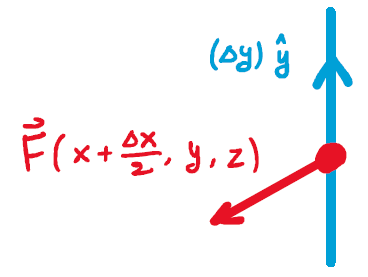 (Δy) ŷ
F⃗(x+Δx/2, y, z)